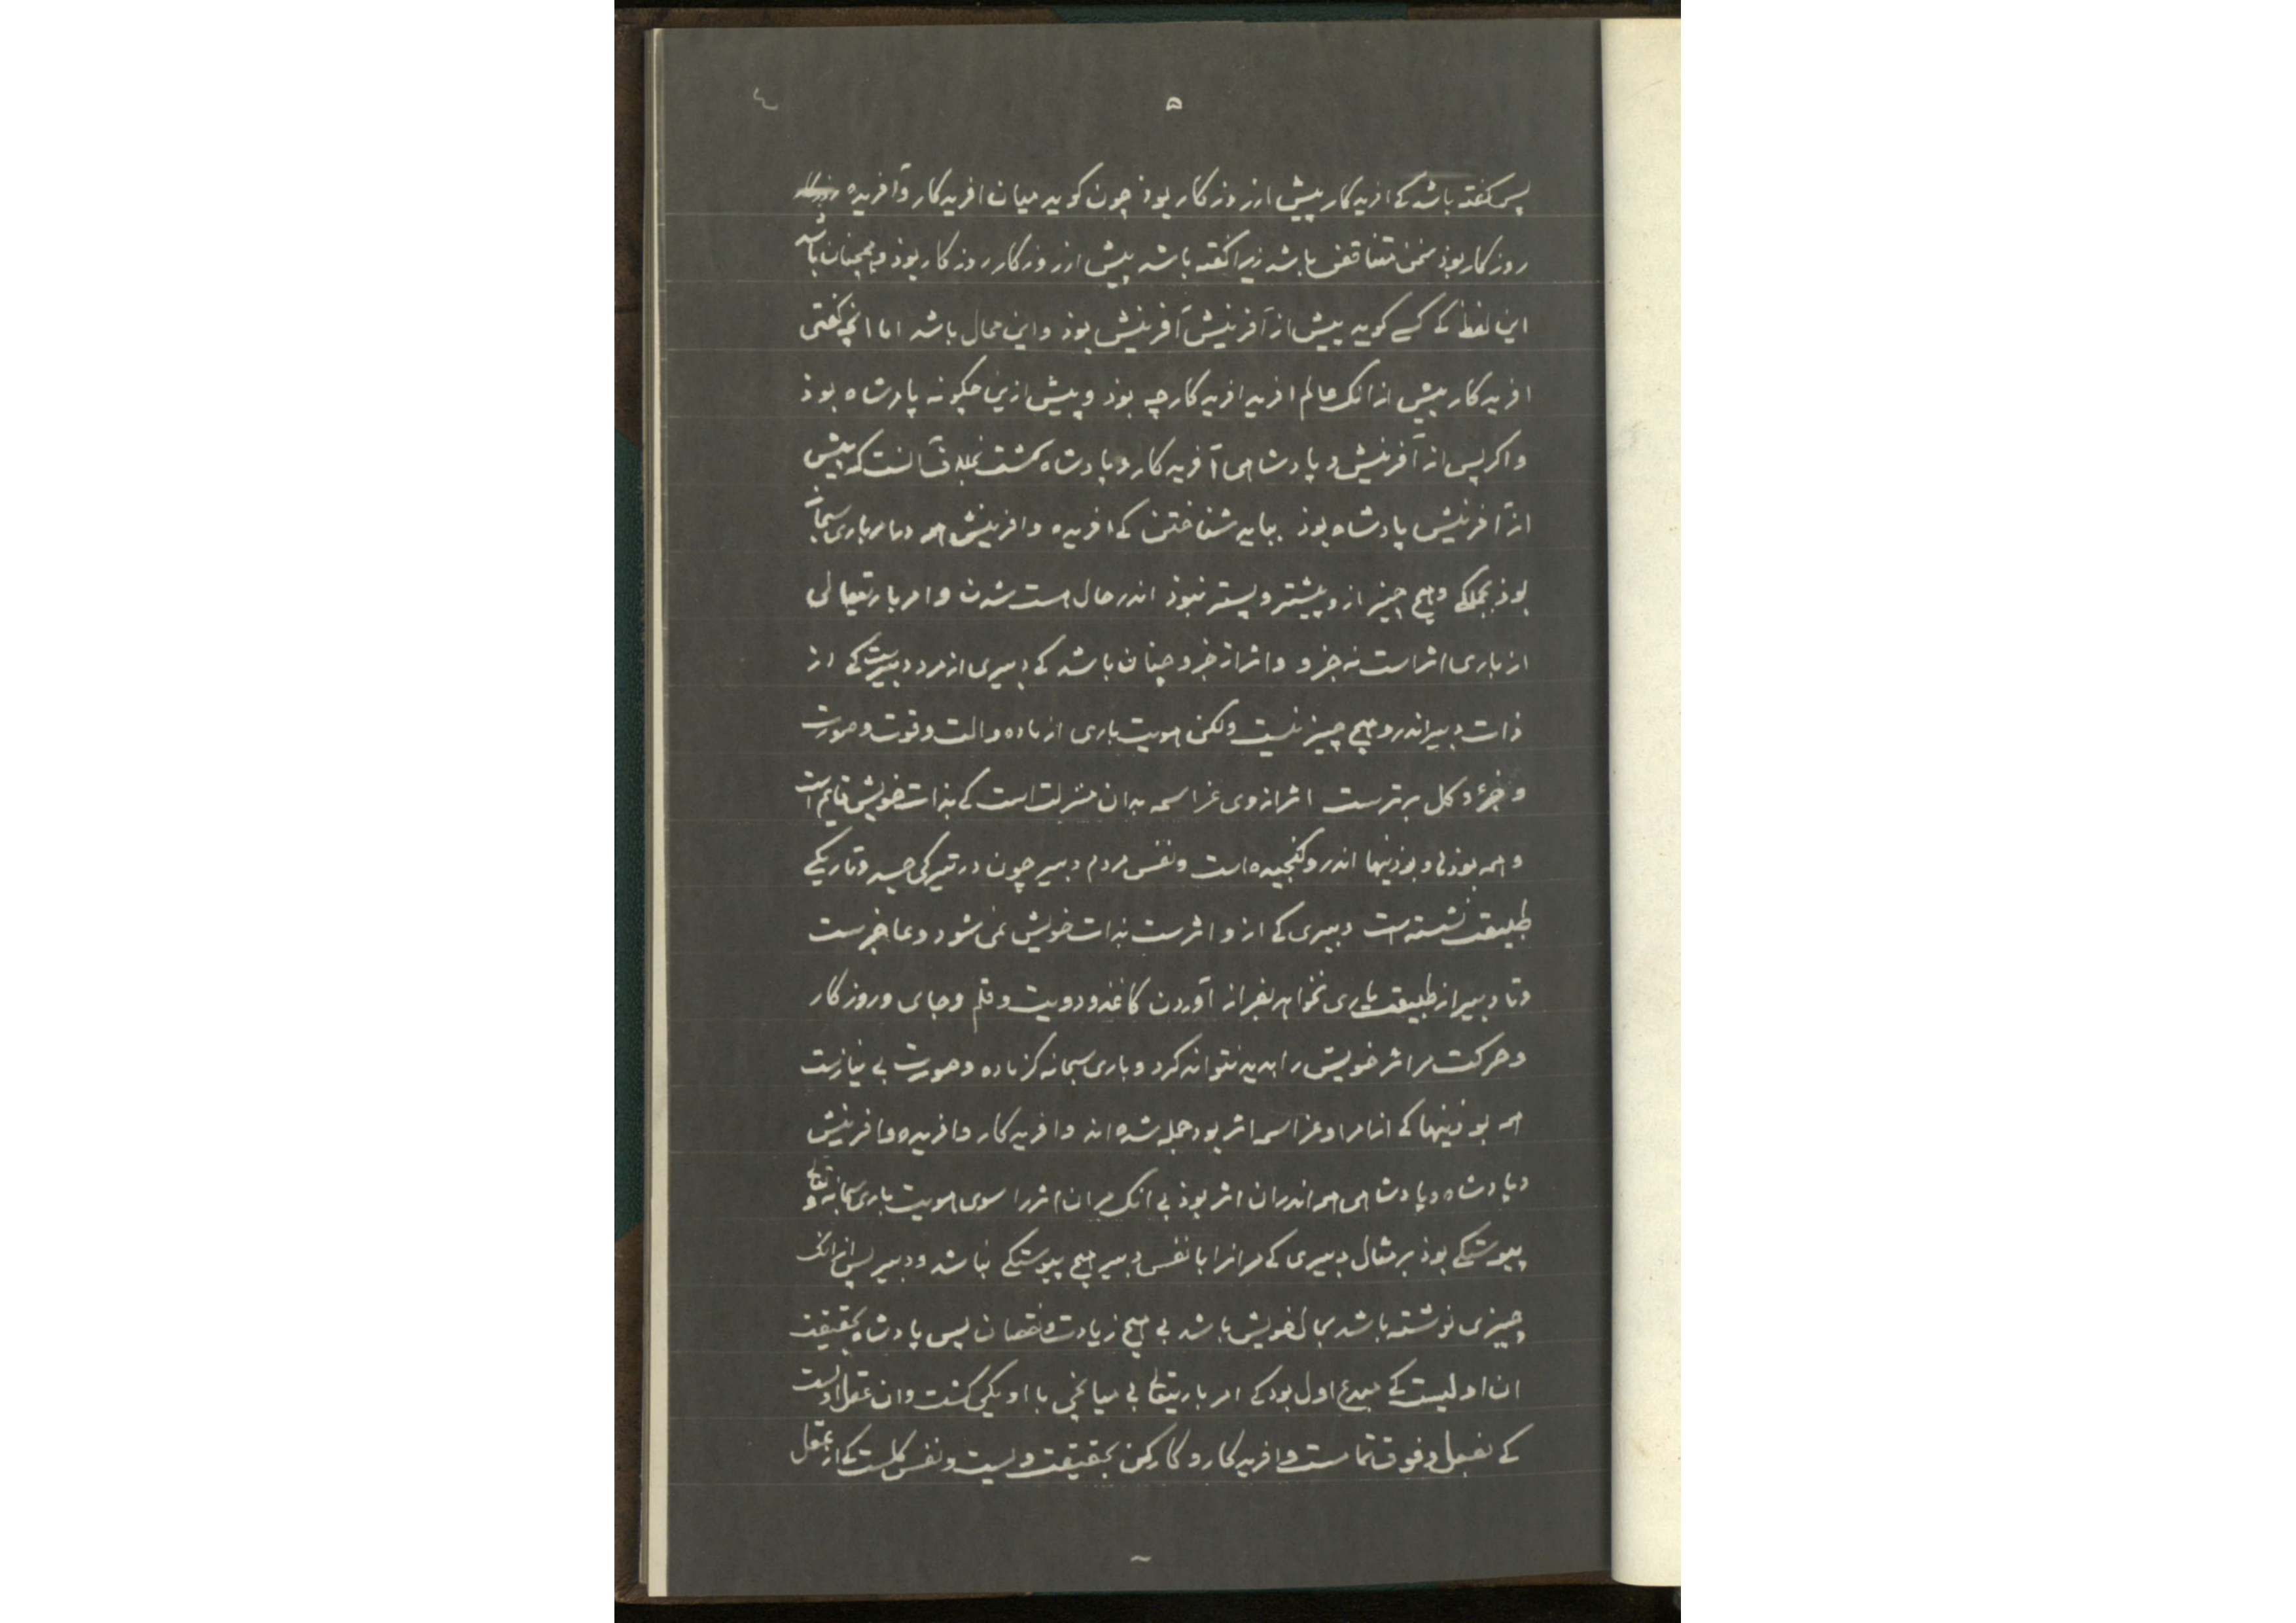 ٤
۵
پس گفته باشد کے افریدکار پیش از روزکار بوذ چون کوید میان افریدکار و آفریده
روزکار بوذ سخن متناقض باشد زیرا گفته باشد پیش از روزکار روزکار بوذ و همچنان باشد
این لفظ کے کسے کوید پیش از آفرینش آفرینش بوذ و این محال باشد اما انچ گفتی
افریدکار پیش از انک عالم افرید افریدکار چه بوذ و پیش ازین چکونه پادشاه بوذ
و اکر پس از آفرینش و پادشاهی آفریدکار و پادشاه کشت بخلاف آنست که پیش
از آفرینش پادشاه بوذ بباید شناختن کے افریده و افرینش همه بامر باری سبحانه
بوذ بجملکے و هیچ چیز ازو پیشتر و پستر نبوذ اندر حال هست شدن و امر باریتعالی
از باری اثر است نه جزو و اثر از جزو چنان باشد کے دبیری از مرد دبیرست کے از
ذات دبیر اندرو هیچ چیز نیست ولکن هویت باری از ماده و الت و قوت و صورت
و جزء و کل برترست اثر از وی عز اسمه بدان منزلت است کے بذات خویش قایم است
و همه بوذها و بوذنیها اندرو کنجیده است و نفس مردم دبیر چون در تیرکی جسد و تاریکے
طبیعت نشسته است دبیری کے ازو اثرست بذات خویش نمی شود و عاجزست
و تا دبیر از طبیعت یاری نخواهد بفراز آوردن کاغذ و دویت و قلم و جای و روزکار
و حرکت مر اثر خویش را بدید نتواند کرد و باری سبحانه کز ماده و صورت بی نیازست
همه بوذنیها کے از امر او عز اسمه اثر بود جمله شده اند و افریدکار و افریده و افرینش
و پادشاه و پادشاهی همه اندران اثر بوذ بی انک مران اثر را سوی هویت باری سبحانه و تعالے
پیوستکے بوذ بر مثال دبیری کے مرانرا با نفس دبیر هیچ پیوستکے نباشد و دبیر پس از انک
چیزی نوشته باشد بحال خویش باشد بی هیچ زیادت و نقصان پس پادشاه بحقیقت
ان اولیست کے مبدع اول بود کے امر باریتعالے بی میانجی با او یکی کشت و ان عقل اولست
کے بفعل و فوق تماست و افریدکار و کارکن بحقیقت ویست و نفس کلست کے از عقل